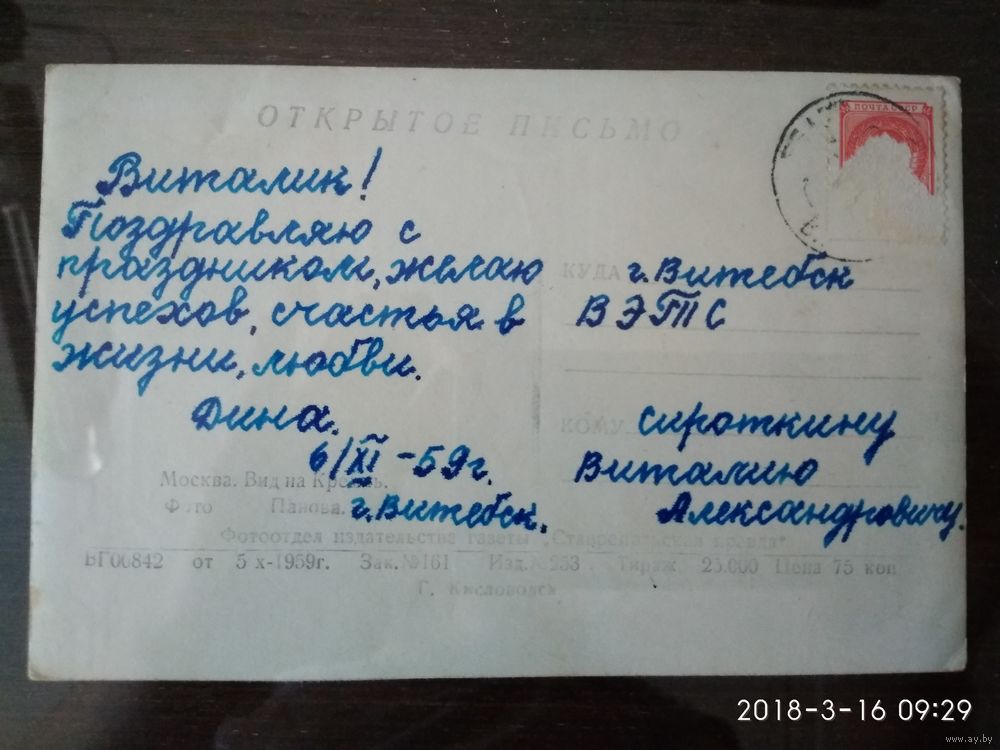 ОТКРЫТОЕ ПИСЬМО
ПОЧТА СССР
Виталик!
Поздравляю с
праздником, желаю
успехов, счастья в
жизни, любви.
Дина.
6/XI -59г.
г. Витебск.
КУДА г. Витебск
ВЭТС
КОМУ Сироткину
Виталию
Александровичу.
Москва. Вид на Кремль.
Фото Панова.
Фотоотдел издательства газеты „Ставропольская правда"
ВГ00842 от 5 х-1959г. Зак. №161 Изд. №233 Тираж 25.000 Цена 75 коп
Г. Кисловодск
2018-3-16 09:29
www.ay.by